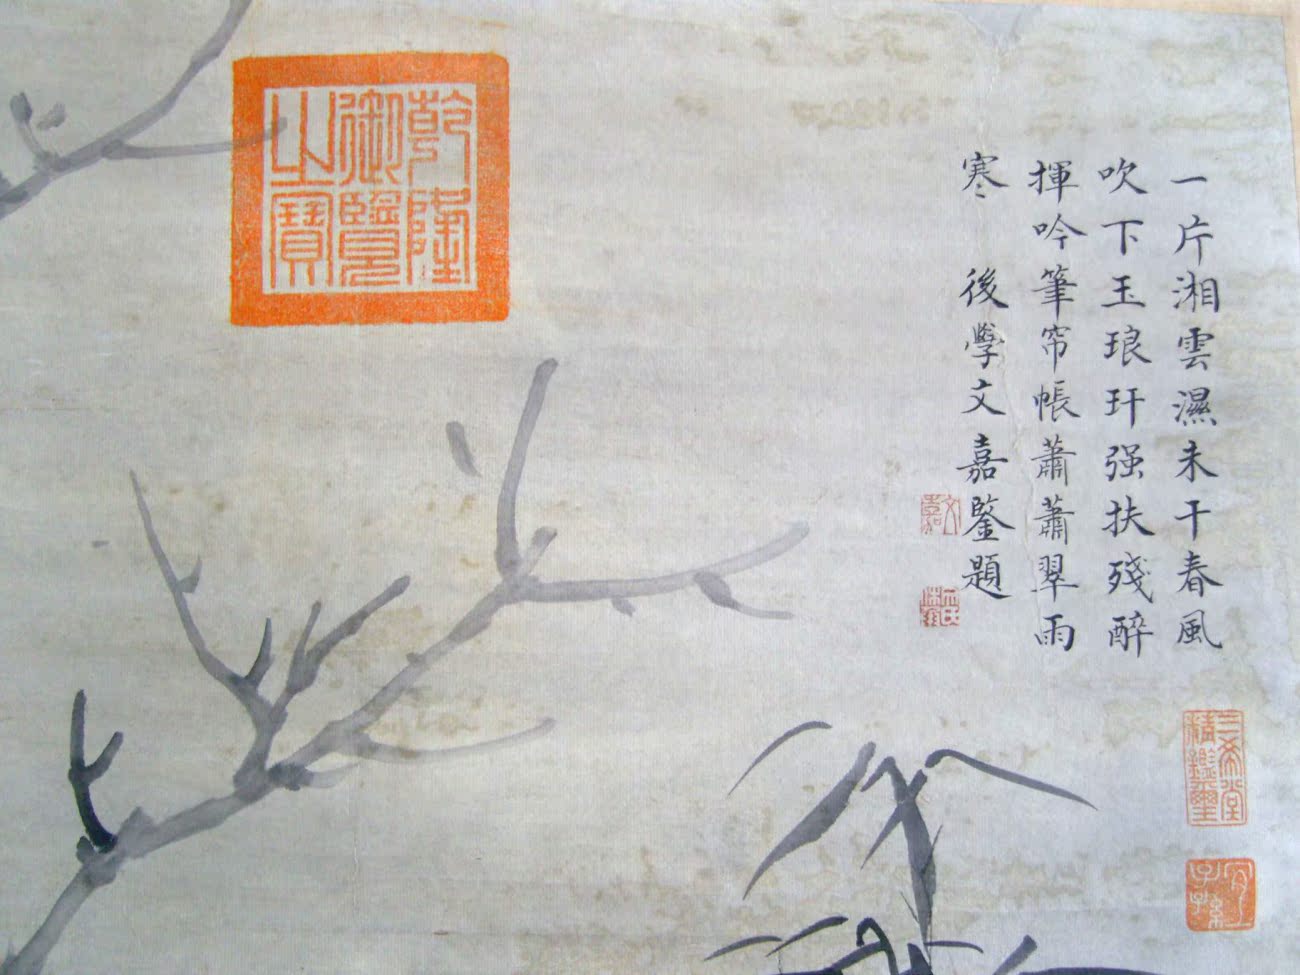 一片湘雲濕未干春風
吹下玉琅玕强扶殘醉
揮吟筆帘帳蕭蕭翠雨
寒　後學文嘉鑒題
文嘉
三希堂精鑑璽
宜子孫
乾隆御覽之寶